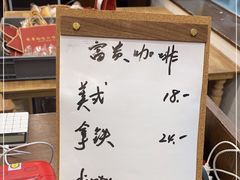 富贵咖啡
美式 18.-
拿铁 24.-